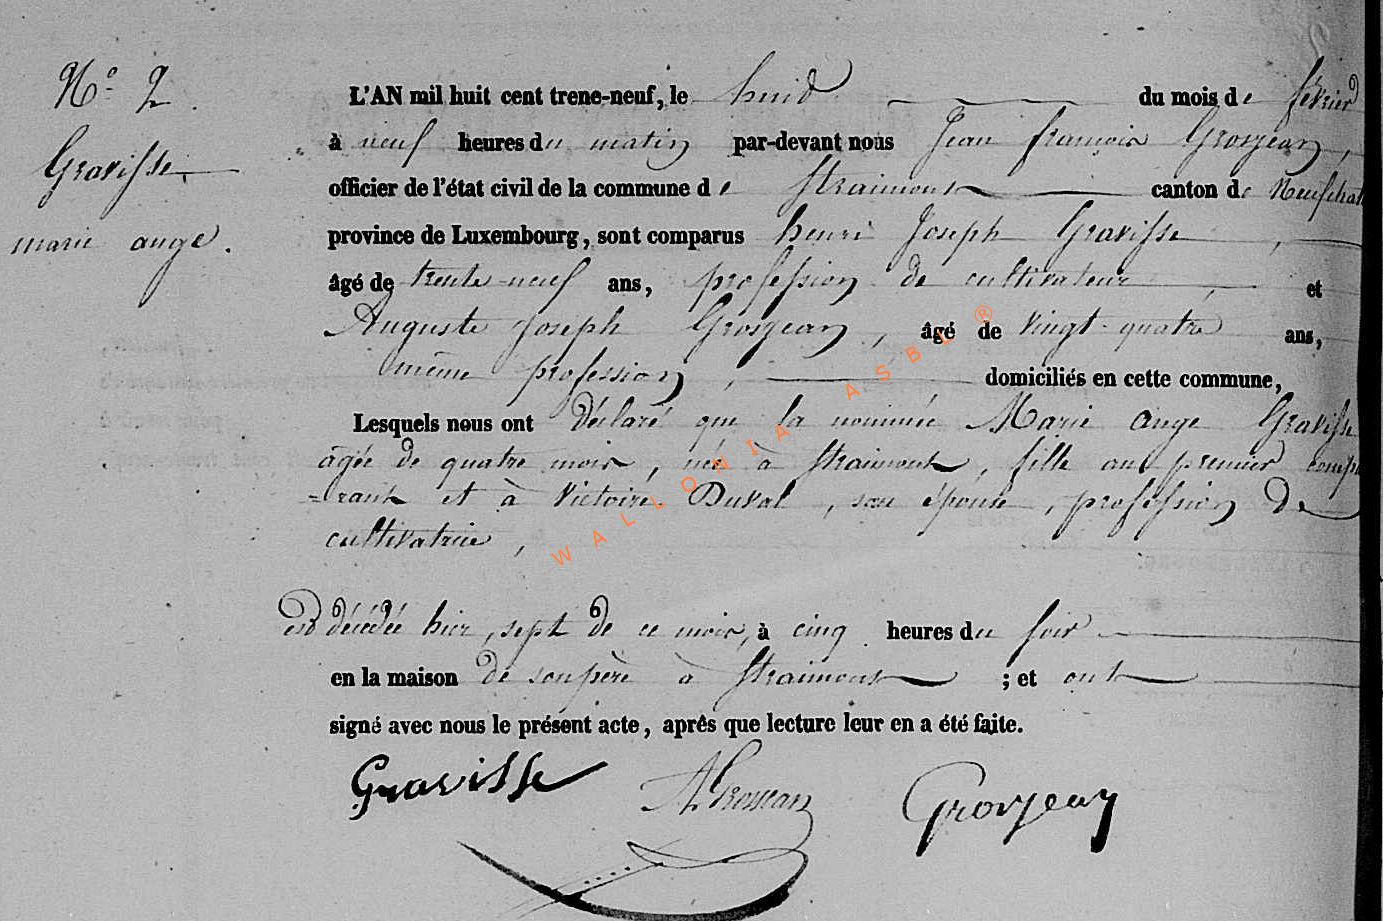 N.o 2.
Gravisse
marie ange.
L'AN mil huit cent trene-neuf, le huid du mois de février
à neuf heures du matin par-devant nous Jean françois Grosjean,
officier de l'état civil de la commune de Straimont canton de Neufchat
province de Luxembourg, sont comparus henri Joseph Gravisse,
âgé de trente-neuf ans, profession de cultivateur, et
Auguste Joseph Grosjean, âgé de vingt-quatre ans,
même profession, domiciliés en cette commune,
Lesquels nous ont déclaré que la nommée Marie ange Gravisse
âgée de quatre mois, née à Straimont, fille au premier compa
=rant et à Victoire Duval, son épouse, profession de
cultivatrice,
est décédée hier, sept de ce mois, à cinq heures du soir
en la maison de son père à Straimont ; et ont
signé avec nous le présent acte, après que lecture leur en a été faite.
Gravisse AGrosjean Grosjean
WALLONIA ASBL ®